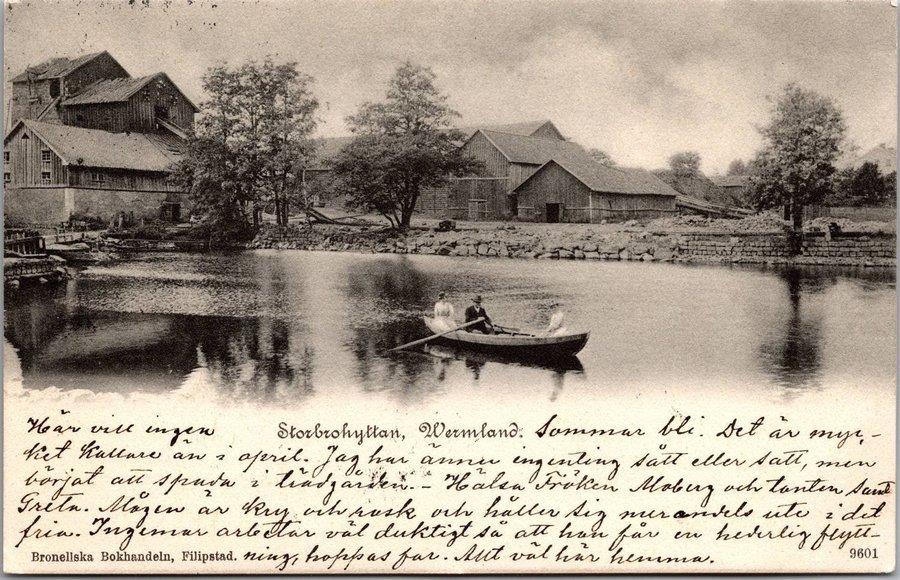 Här vill ingen Storbrohyttan, Wermland. Sommar bli. Det är myc-
ket kallare än i april. Jag har ännu ingenting sått eller satt, men
börjat att spada i trädgården. - Hälsa Fröken Moberg och tanten samt
Greta. Mågen är kry och rask och håller sig merandels ute i det
fria. Ingemar arbetar väl duktigt så att han får en hederlig flytt-
Bronellska Bokhandeln, Filipstad. ning, hoppas far. Allt väl här hemma. 9601